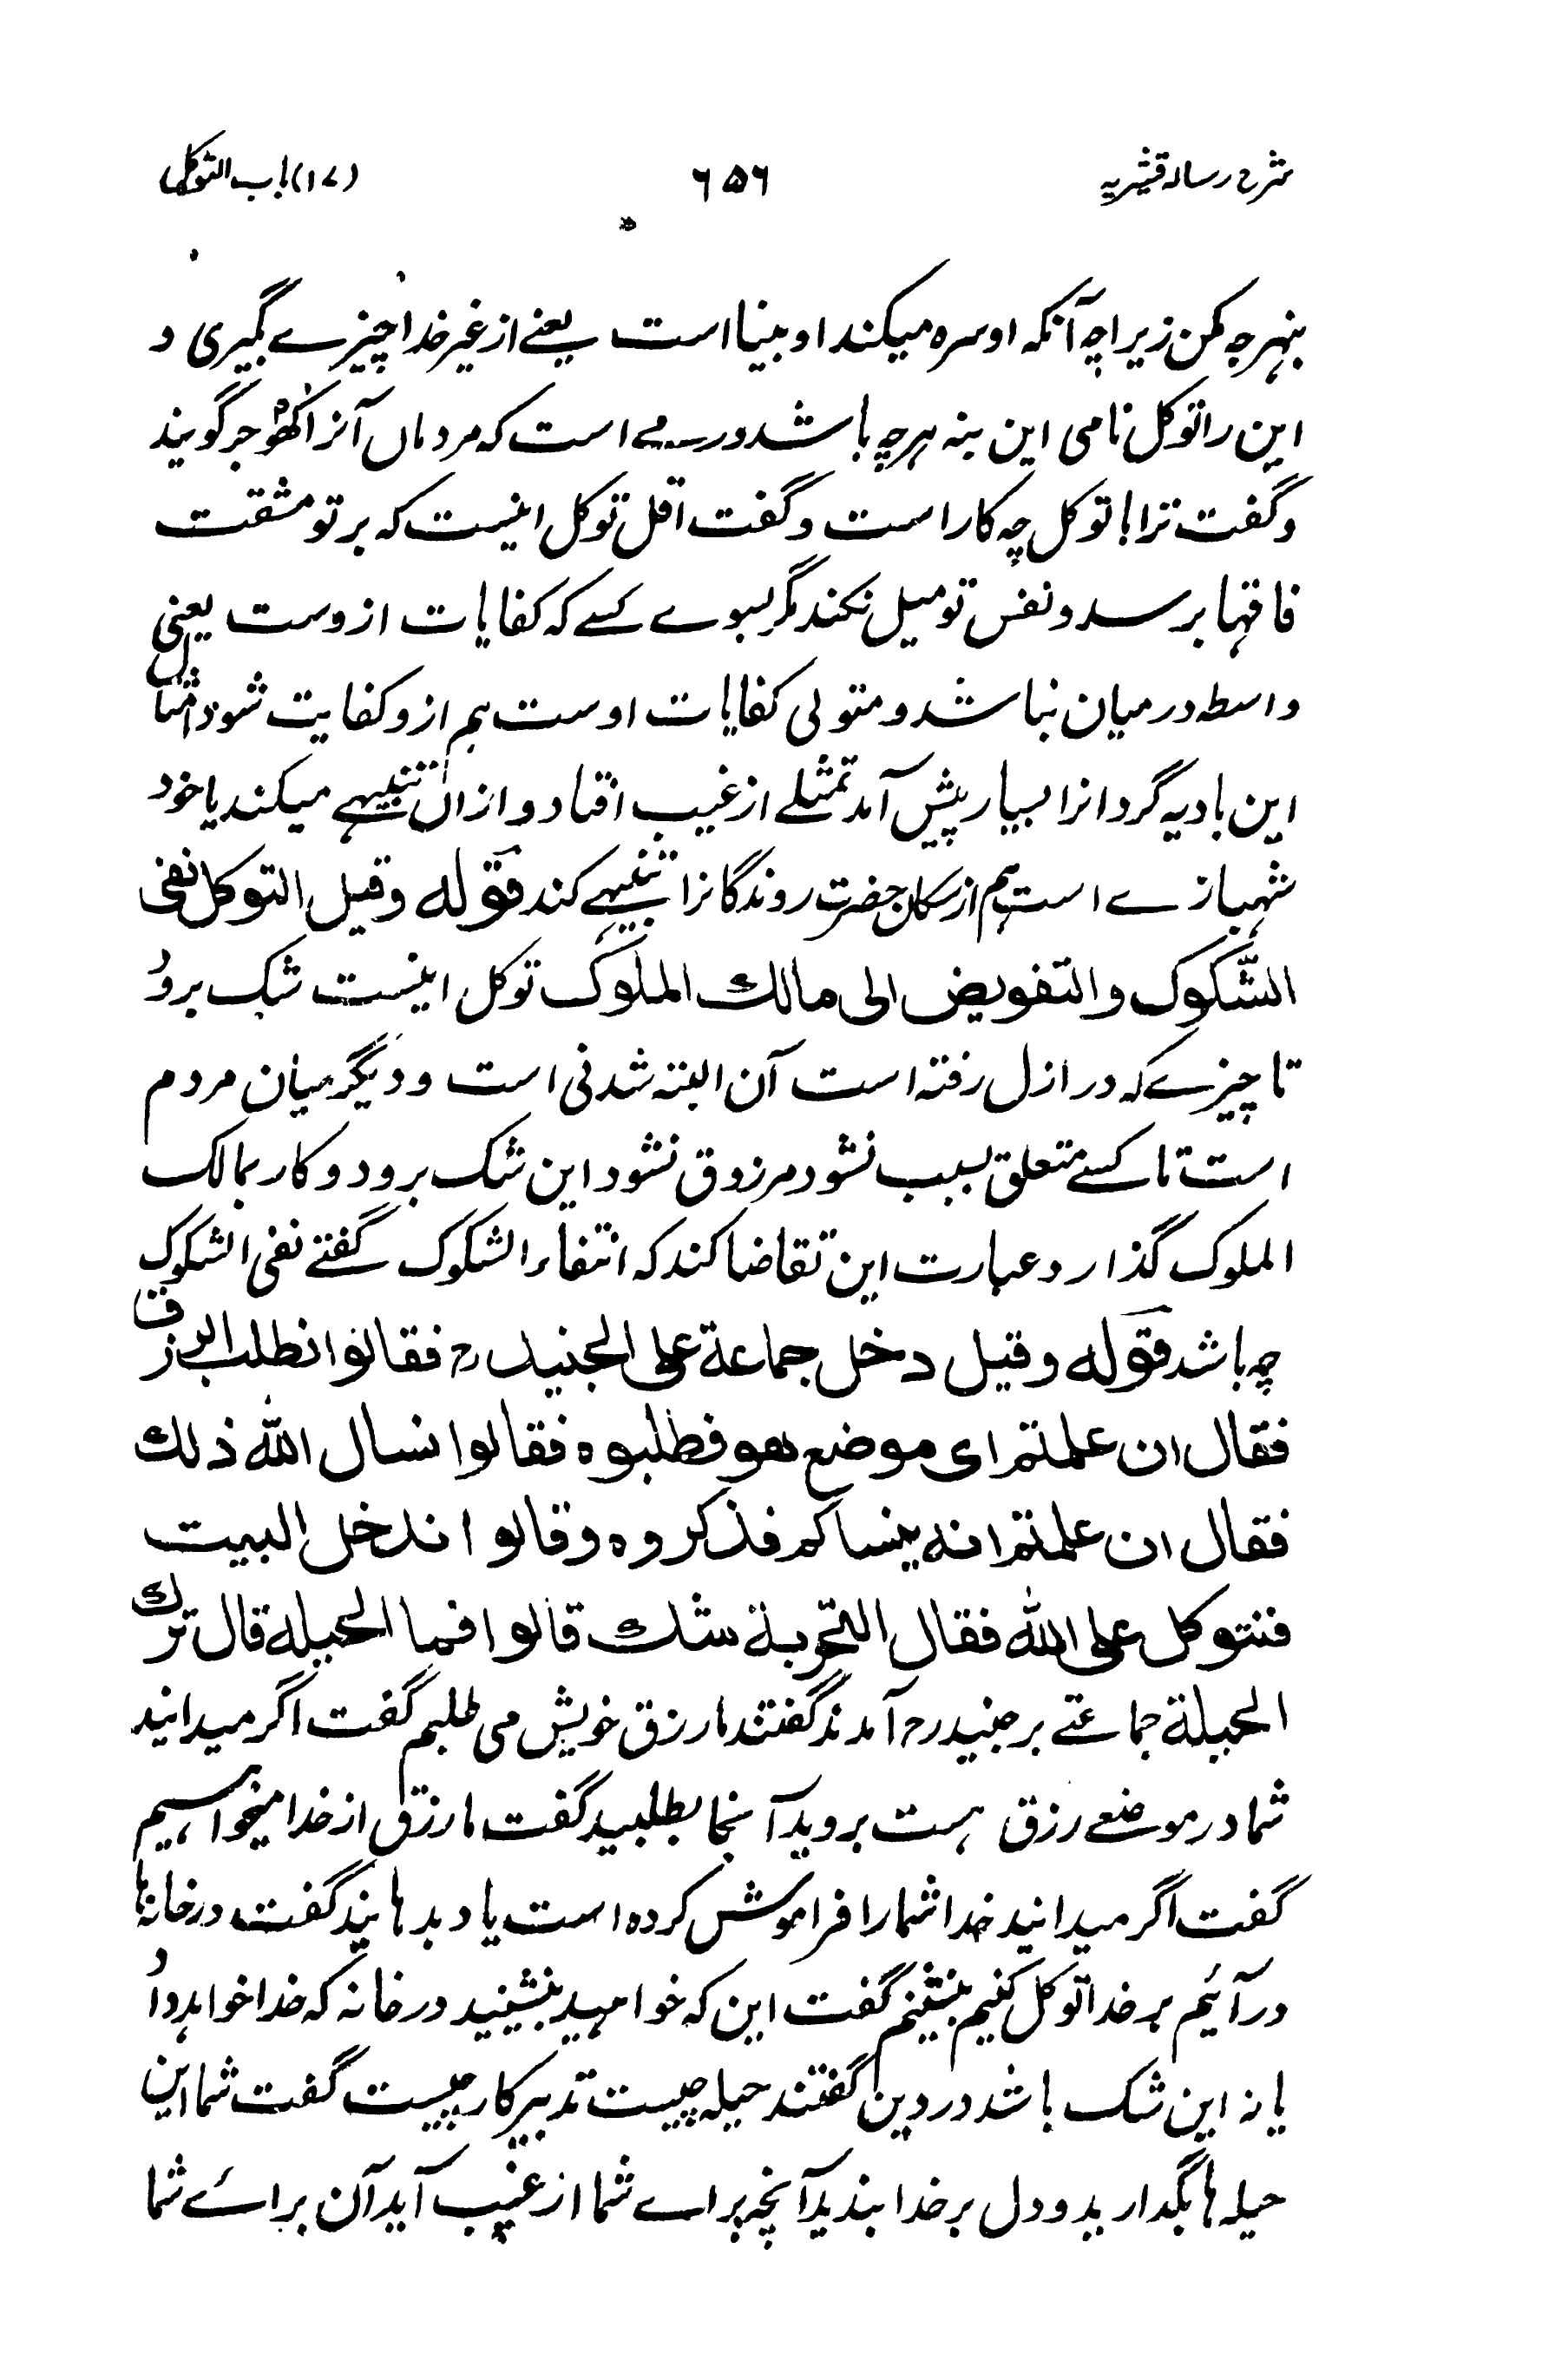 شرح رسالہ قشیریہ ۶۵۶ (۱۷) باب التوکل
بنہرجہ مکن زیراچہ آنکہ او سرہ میکند او بینا است یعنے از غیر خدا چیزے بگیری و
این را توکل نامی این بنہ ہرچہ باشد ورسمے است کہ مردمان آنرا گویند
و گفت ترا با توکل چہ کار است و گفت اقل توکل اینست کہ بر تو مشقت
فاقہا برسد و نفس تو میل نکند مگر بسوے کسے کہ کفایات ازوست یعنی
واسطہ درمیان نباشد و متولی کفایات اوست ہم ازو کفایت شود امثال
این بادیہ گردانرا بسیار پیش آمد تمثلے از غیب افتاد و ازان تنبیہے میکند یا خود
شہبازے است ہم از سکان حضرت روندگانرا تنبیہے کند قولہ وقیل التوکل نفی
الشکوک والتفویض الی مالک الملوک توکل اینست شک برود
تا چیزے کہ در ازل رفتہ است آن البتہ شدنی است و دیگر میان مردم
است تا کسے متعلق بسبب نشود مرزوق نشود این شک برود و کار بمالک
الملوک گذارد عبارت این تقاضا کند کہ انتفاء الشکوک گفتے نفی الشکوک
چہ باشد قولہ وقیل دخل جماعة علی الجنید رح فقالوا نطلب الرزق
فقال ان علمتم ای موضع ھو فطلبوہ فقالوا نسال اللہ ذلک
فقال ان علمتم انہ ینساکم فذکروہ وقالوا ندخل البیت
فنتوکل علی اللہ فقال التجربة شک قالوا فما الحیلة قال ترک
الحیلة جماعتے بر جنید رح آمدند گفتند ما رزق خویش می طلبم گفت اگر میدانید
شما در موضعے رزق ہست بروید آنجا بطلبید گفت ما رزق از خدا میخواہیم
گفت اگر میدانید خدا شمارا فراموش کردہ است یاد بدہانید گفت در خانہا
در آئیم بر خدا توکل کنیم بنشینم گفت این کہ خواہید بنشینید در خانہ کہ خدا خواہد داد
یا نہ این شک باشد در دین گفتند حیلہ چیست تدبیر کار چیست گفت شما این
حیلہ ہا بگذارید و دل بر خدا بندید آنچہ براے شما از غیب آید آن برائے شما